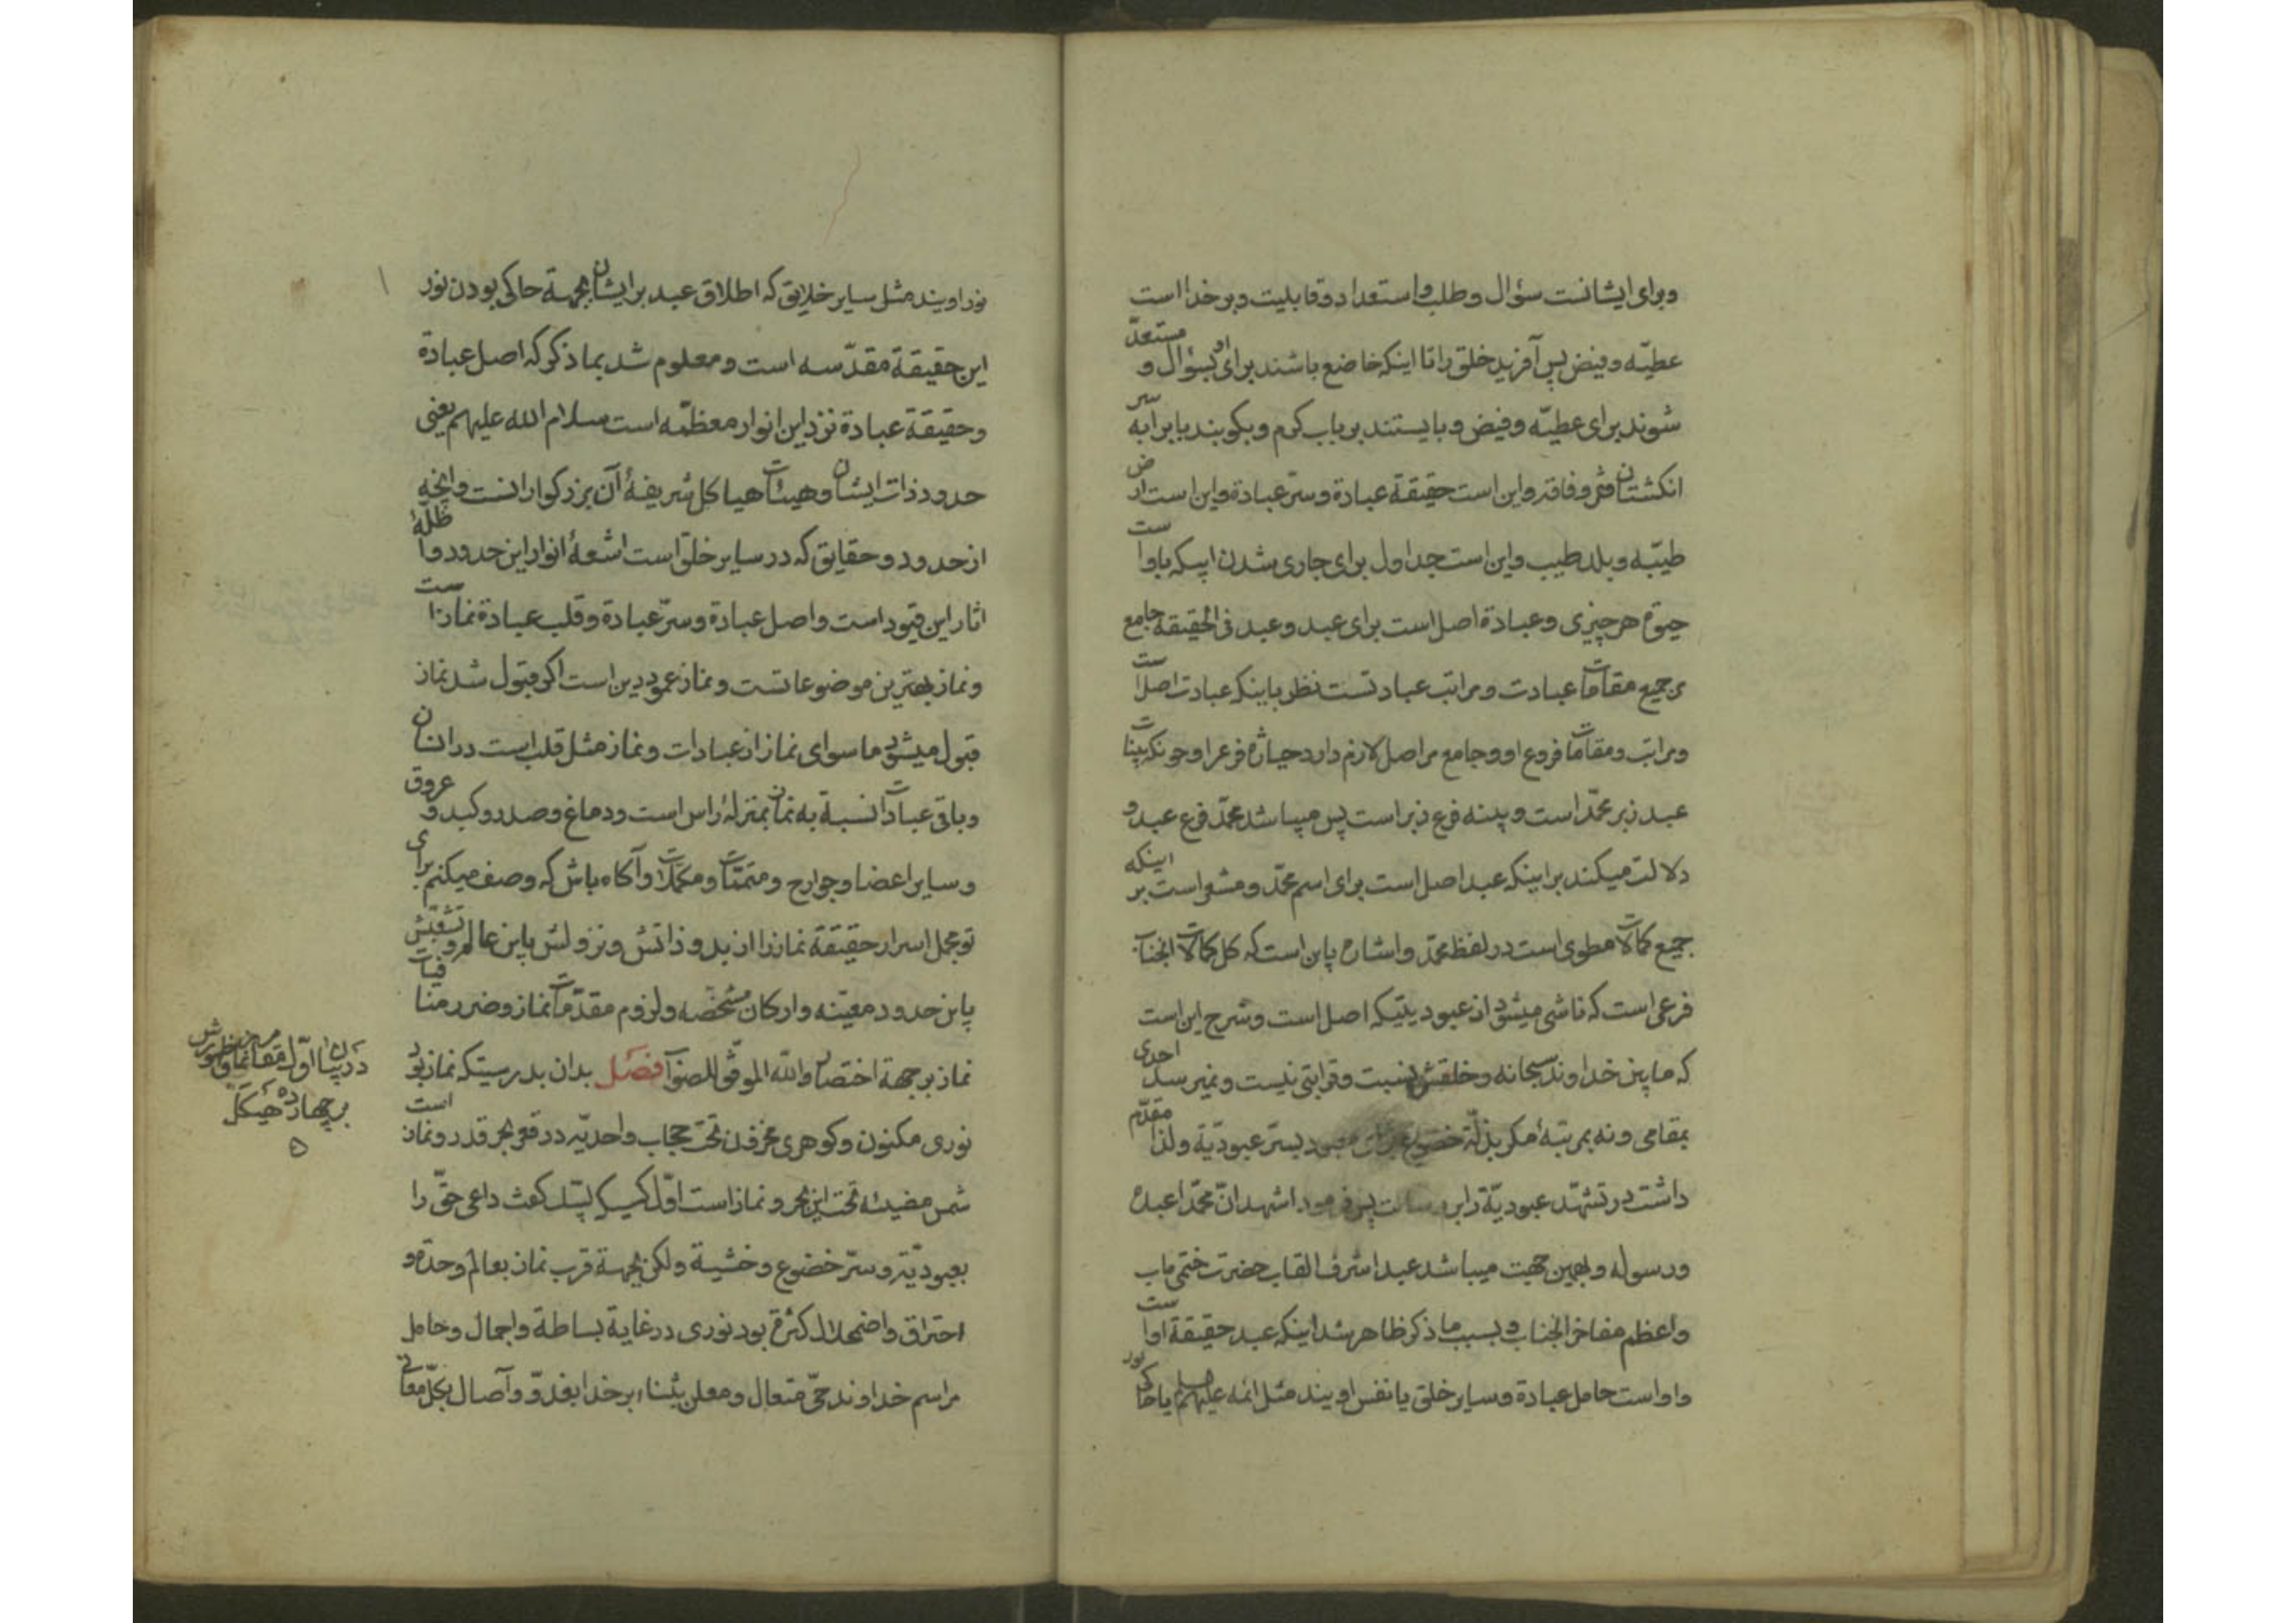 وبرای ایشانست سؤال وطلب واستعداد وقابلیت وبر خدا است
عطیّه وفیض پس آفرید خلق را تا اینکه خاضع باشند برای او بسؤال و مستعدّ
شوند برای عطیّه وفیض وبایستند بر باب کرم وبکوبند باب را به سر
انکشتان فقر وفاقه واین است حقیقة عبادة وسرّ عبادة واین است ارض
طیّبه وبلد طیب واین است جداول برای جاری شدن ابیکه باو است
حیوة هر چیزی وعبادة اصل است برای عبد وعبد فی الحقیقة جامع
جمیع مقامات عبادت ومراتب عبادتست نظر باینکه عبادت اصل است
ومراتب ومقامات فروع او وجامع مر اصل لازم دارد حیازه فرع را وچونکه بینات
عبد زبر محمّد است وبینه فرع زبر است پس میباشد محمّد فرع عبد و
دلالت میکند بر اینکه عبد اصل است برای اسم محمّد ومشعر است بر اینکه
جمیع کمالات مطوی است در لفظ محمّد واشاره باین است که کل کمالات انجناب
فرعی است که ناشی میشود از عبودیتیکه اصل است وشرح این است
که مابین خداوند سبحانه وخلقش نسبت وقرابتی نیست ونمیرسد احدی
بمقامی ونه بمرتبهٔ مکر بذلّة خضوع معبود بسرّ عبودیّة ولذا مقدّم
داشت در تشهّد عبودیّة را بر رسالت پس فرمود اشهد انّ محمّدا عبده
ورسوله وبهمین جهت میباشد عبد اشرف القاب حضرت ختمی ماب
واعظم مفاخر انجناب وبسبب ما ذکر ظاهر شد اینکه عبد حقیقة او است
واو است حامل عبادة وسایر خلق یا نفس اویند مثل ائمه علیهم یا حاکی نور
نور اویند مثل سایر خلایق که اطلاق عبد بر ایشان بجهة حاکی بودن نور
این حقیقة مقدّسه است ومعلوم شد بما ذکر که اصل عبادة
وحقیقة عبادة نزد این انوار معظّمه است سلام الله علیهم یعنی
حدود ذات ایشان وهیئات هیاکل شریفهٔ آن بزرکوارانست وانچه
از حدود وحقایق که در سایر خلق است اشعهٔ انوار این حدود واظلّهٔ
اثار این قیود است واصل عبادة وسرّ عبادة وقلب عبادة نماز است
ونماز بهترین موضوعاتست ونماز عمود دین است اکر قبول شد نماز
قبول میشود ماسوای نماز از عبادات ونماز مثل قلب است در انسان
وباقی عبادات نسبة به نماز بمنزلهٔ راس است ودماغ وصدر وکبد و عروق
وسایر اعضا وجوارح ومتمّمات ومکمّلات وآکاه باش که وصف میکنم برای
تو مجمل اسرار حقیقة نماز را از بدو ذاتش ونزولش باین عالم وتشعّبش
باین حدود معیّنه وارکان مشخّصه ولزوم مقدّمات نماز وضرر منافیات
نماز بر جهة اختصار والله الموفّق للصواب فصل بدان بدرستیکه نماز بود
نوری مکنون وکوهری مخزون تحت حجاب واحدیّه در قعر بحر قدر ونماز است
شمس مضیئه تحت این بحر ونماز است اوّل کسیکه لبّیک کفت داعی حقّ را
بعبودیّة وسرّ خضوع وخشیة ولکن بجهة قرب نماز بعالم وحدة و
احتراق واضمحلال کثرة بود نوری در غایة بساطة واجمال وحامل
مراسم خداوند حیّ متعال ومعلن بثناء بر خدا بغدوّ وآصال بکلّ معانی
در بیان اوّل مقام نماز وظهورش
بر چهارده هیکل